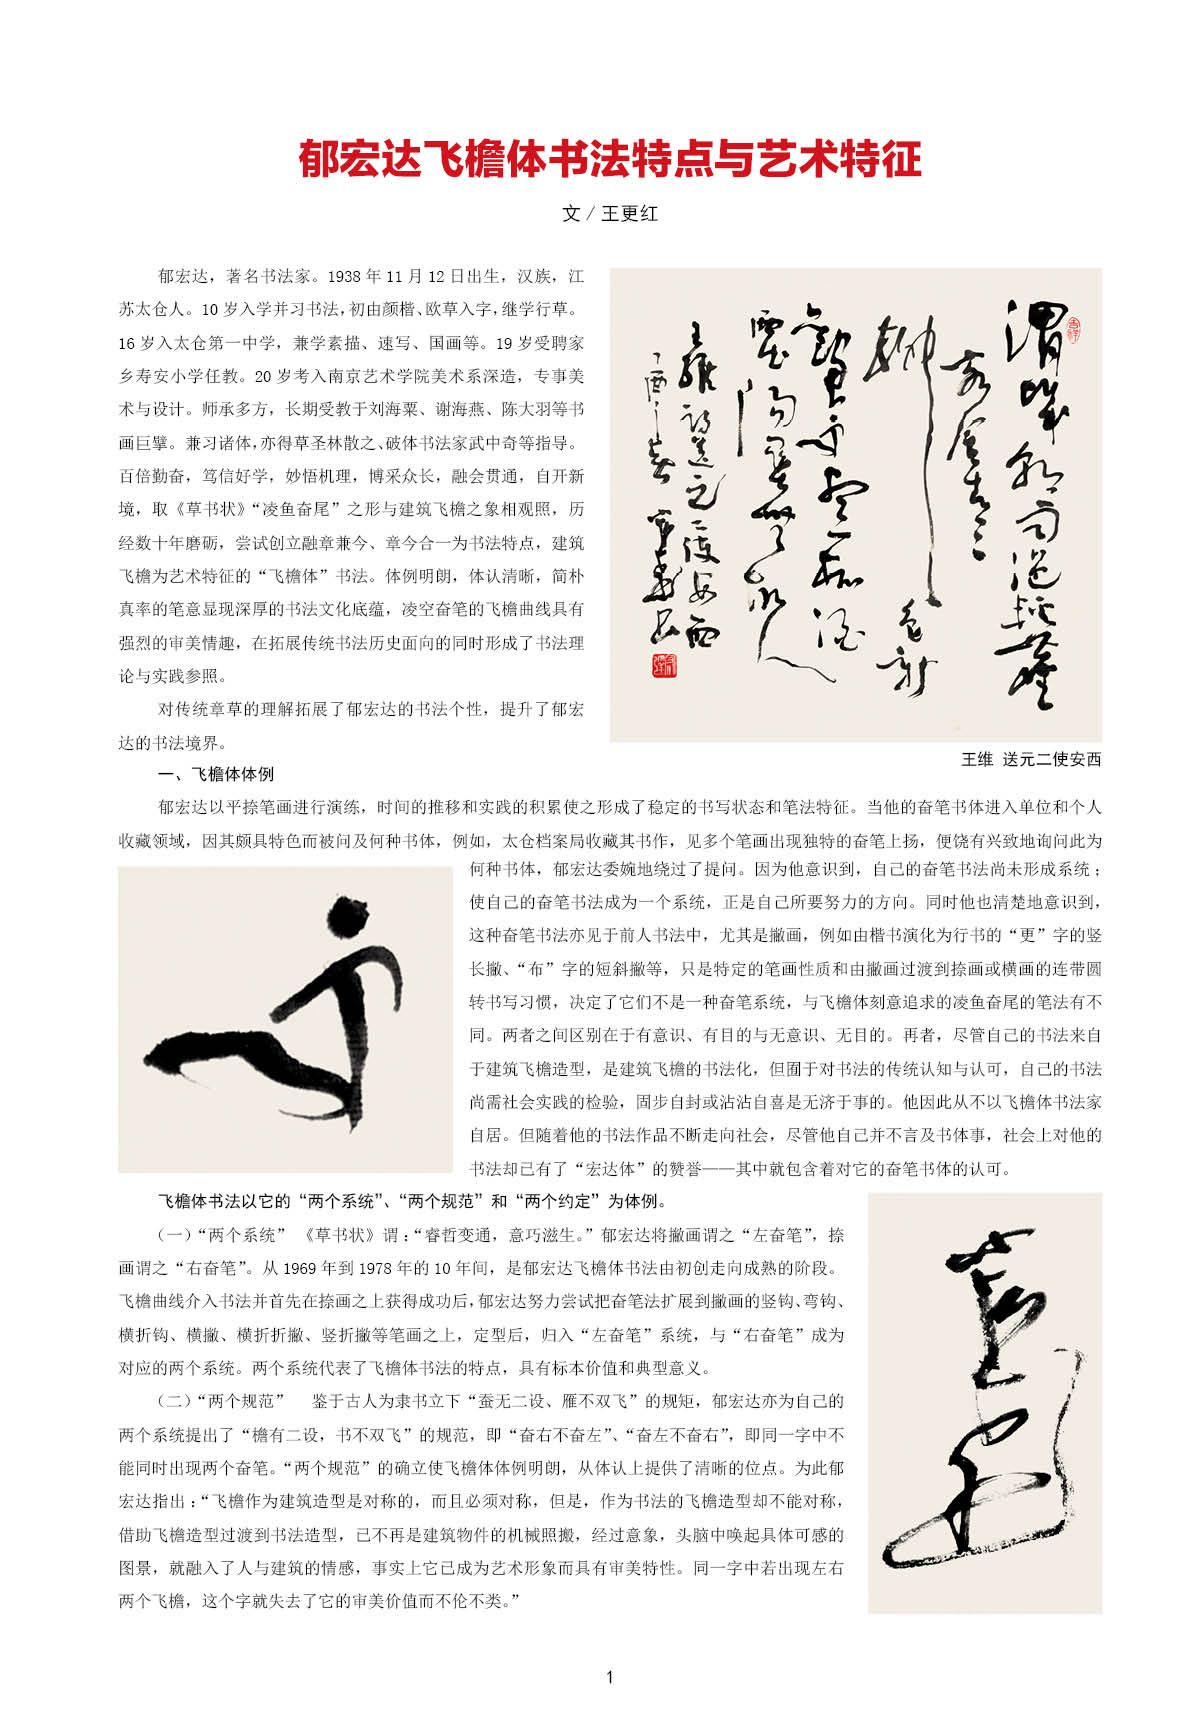 郁宏达飞檐体书法特点与艺术特征
文 / 王更红
郁宏达，著名书法家。1938 年 11 月 12 日出生，汉族，江
苏太仓人。10 岁入学并习书法，初由颜楷、欧草入字，继学行草。
16 岁入太仓第一中学，兼学素描、速写、国画等。19 岁受聘家
乡寿安小学任教。20 岁考入南京艺术学院美术系深造，专事美
术与设计。师承多方，长期受教于刘海粟、谢海燕、陈大羽等书
画巨擘。兼习诸体，亦得草圣林散之、破体书法家武中奇等指导。
百倍勤奋，笃信好学，妙悟机理，博采众长，融会贯通，自开新
境，取《草书状》“凌鱼奋尾”之形与建筑飞檐之象相观照，历
经数十年磨砺，尝试创立融章兼今、章今合一为书法特点，建筑
飞檐为艺术特征的“飞檐体”书法。体例明朗，体认清晰，简朴
真率的笔意显现深厚的书法文化底蕴，凌空奋笔的飞檐曲线具有
强烈的审美情趣，在拓展传统书法历史面向的同时形成了书法理
论与实践参照。
对传统章草的理解拓展了郁宏达的书法个性，提升了郁宏
达的书法境界。
渭城朝雨浥轻尘
客舍青青
柳
色新
劝君更尽一杯酒
西出阳关无故人
王维诗送元二使安西
王维 送元二使安西
一、飞檐体体例
郁宏达以平捺笔画进行演练，时间的推移和实践的积累使之形成了稳定的书写状态和笔法特征。当他的奋笔书体进入单位和个人
收藏领域，因其颇具特色而被问及何种书体，例如，太仓档案局收藏其书作，见多个笔画出现独特的奋笔上扬，便饶有兴致地询问此为
何种书体，郁宏达委婉地绕过了提问。因为他意识到，自己的奋笔书法尚未形成系统；
使自己的奋笔书法成为一个系统，正是自己所要努力的方向。同时他也清楚地意识到，
这种奋笔书法亦见于前人书法中，尤其是撇画，例如由楷书演化为行书的“更”字的竖
长撇、“布”字的短斜撇等，只是特定的笔画性质和由撇画过渡到捺画或横画的连带圆
转书写习惯，决定了它们不是一种奋笔系统，与飞檐体刻意追求的凌鱼奋尾的笔法有不
同。两者之间区别在于有意识、有目的与无意识、无目的。再者，尽管自己的书法来自
于建筑飞檐造型，是建筑飞檐的书法化，但囿于对书法的传统认知与认可，自己的书法
尚需社会实践的检验，固步自封或沾沾自喜是无济于事的。他因此从不以飞檐体书法家
自居。但随着他的书法作品不断走向社会，尽管他自己并不言及书体事，社会上对他的
书法却已有了“宏达体”的赞誉——其中就包含着对它的奋笔书体的认可。
飞檐体书法以它的“两个系统”、“两个规范”和“两个约定”为体例。
（一）“两个系统” 《草书状》谓：“睿哲变通，意巧滋生。”郁宏达将撇画谓之“左奋笔”，捺
画谓之“右奋笔”。从 1969 年到 1978 年的 10 年间，是郁宏达飞檐体书法由初创走向成熟的阶段。
飞檐曲线介入书法并首先在捺画之上获得成功后，郁宏达努力尝试把奋笔法扩展到撇画的竖钩、弯钩、
横折钩、横撇、横折折撇、竖折撇等笔画之上，定型后，归入“左奋笔”系统，与“右奋笔”成为
对应的两个系统。两个系统代表了飞檐体书法的特点，具有标本价值和典型意义。
（二）“两个规范” 鉴于古人为隶书立下“蚕无二设、雁不双飞”的规矩，郁宏达亦为自己的
两个系统提出了“檐有二设，书不双飞”的规范，即“奋右不奋左”、“奋左不奋右”，即同一字中不
能同时出现两个奋笔。“两个规范”的确立使飞檐体体例明朗，从体认上提供了清晰的位点。为此郁
宏达指出：“飞檐作为建筑造型是对称的，而且必须对称，但是，作为书法的飞檐造型却不能对称，
借助飞檐造型过渡到书法造型，已不再是建筑物件的机械照搬，经过意象，头脑中唤起具体可感的
图景，就融入了人与建筑的情感，事实上它已成为艺术形象而具有审美特性。同一字中若出现左右
两个飞檐，这个字就失去了它的审美价值而不伦不类。”
1